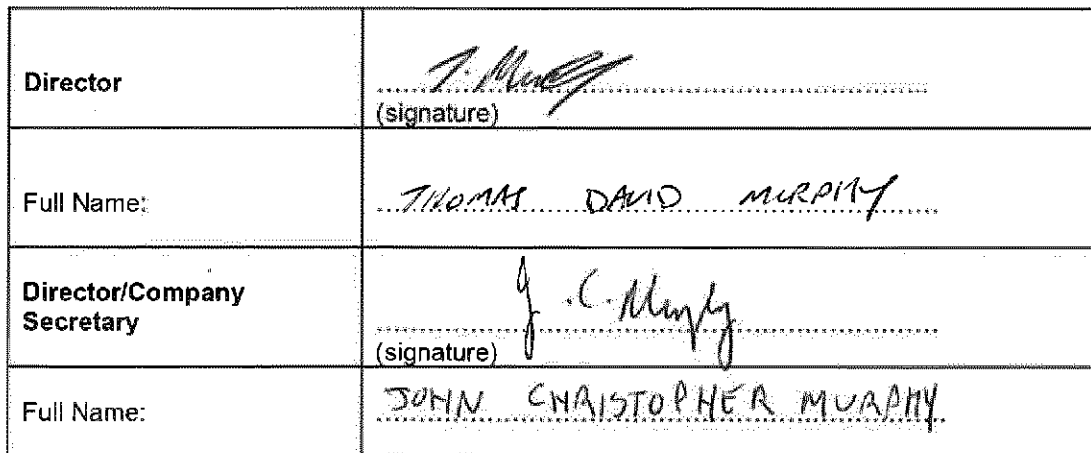 Director
T. Murphy
(signature)
Full Name:
THOMAS DAVID MURPHY
Director/Company
Secretary
J.C. Murphy
(signature)
Full Name:
JOHN CHRISTOPHER MURPHY